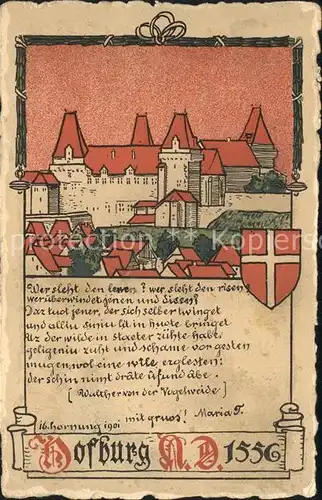 Wer sleht den lewen? wer sleht den risen?
wer überwindet jenen und disen?
Daz tuot jener, der sich selber twinget
und alliu siniu lit in huote bringet
Uz der wilde in staeter zühte habt
geligeniu zuht und schame vor gesten
mugen wol eine wile erglesten:
der schin nimt drâte ûf und abe.
[Walther von der Vogelweide]
mit gruss! Maria T.
16. hornung 1901
Hofburg A.D. 1556